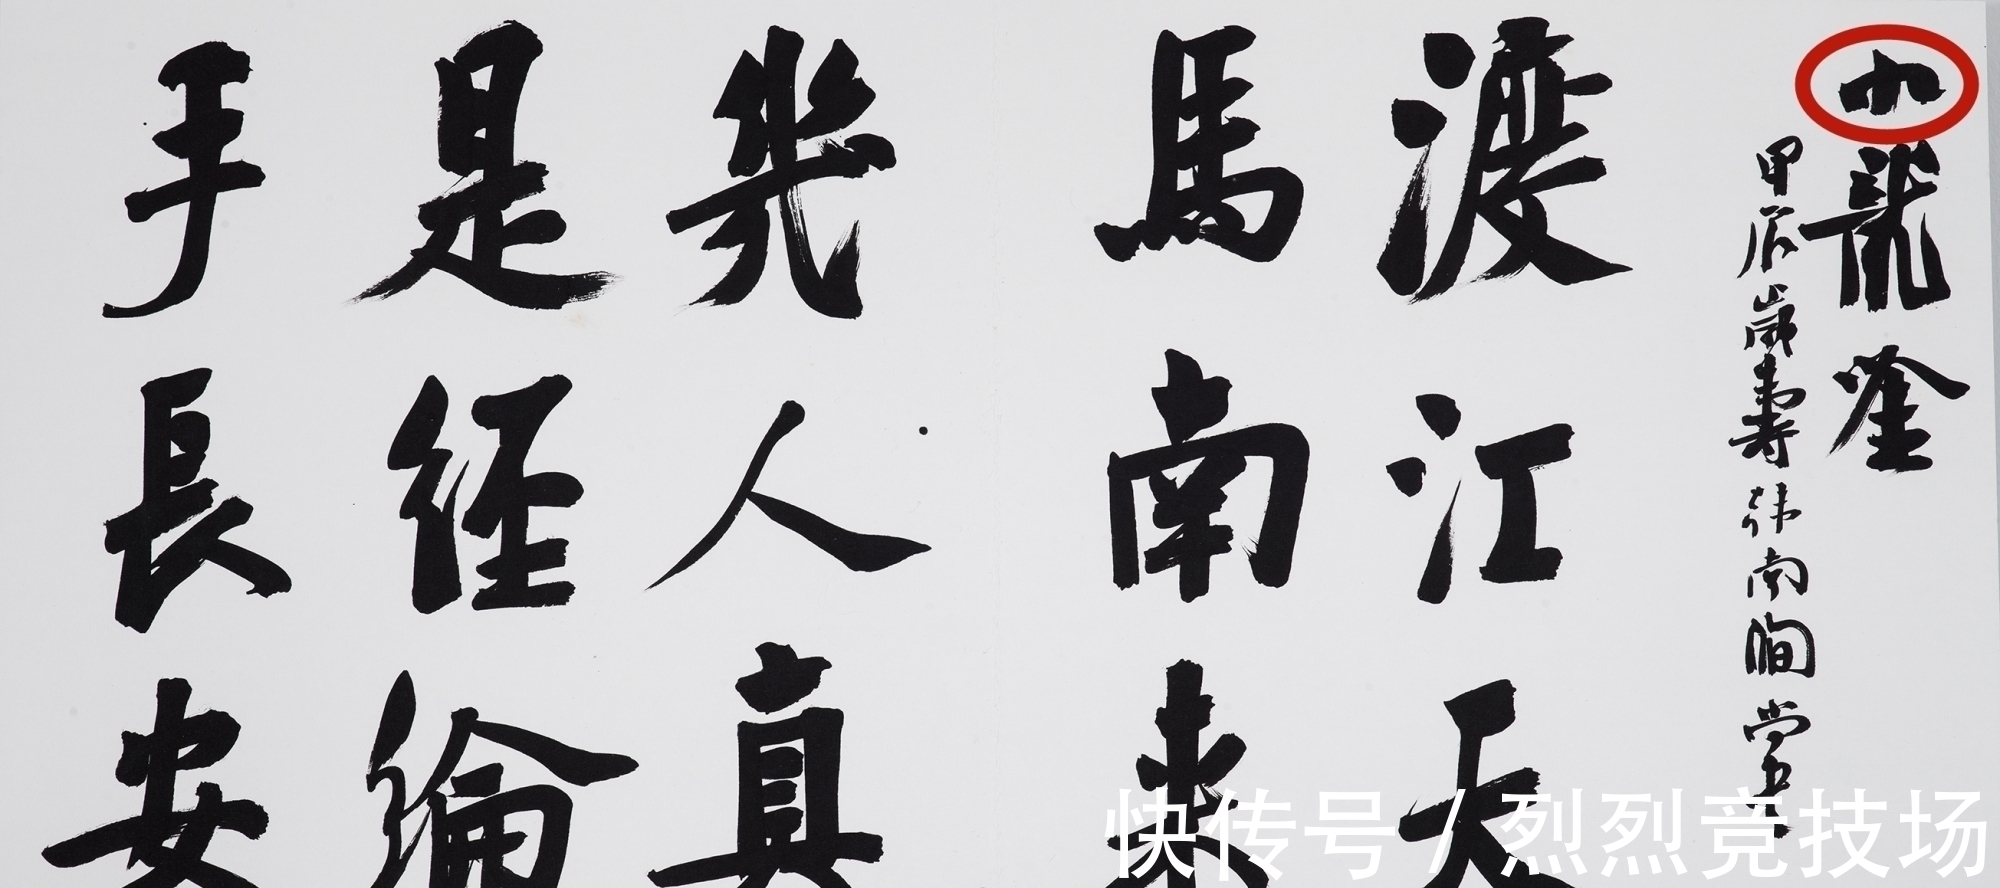 水龍唫
甲辰歲壽韓南澗尚書
渡江天
馬南來
幾人真
是經綸
手長安
快传号 / 烈烈竞技场